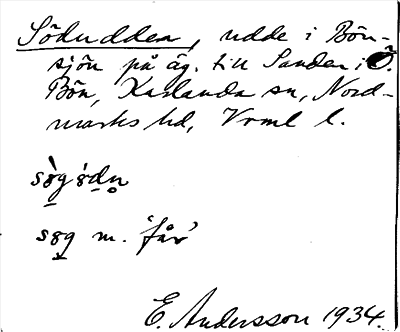 Södudden, udde i Bön-
sjön på äg. till Sanden i Ö.
Bön, Karlanda sn, Nord-
marks hd, Vrml l.
sø̀g ødn̥
søg m. 'får'
E. Andersson 1934.